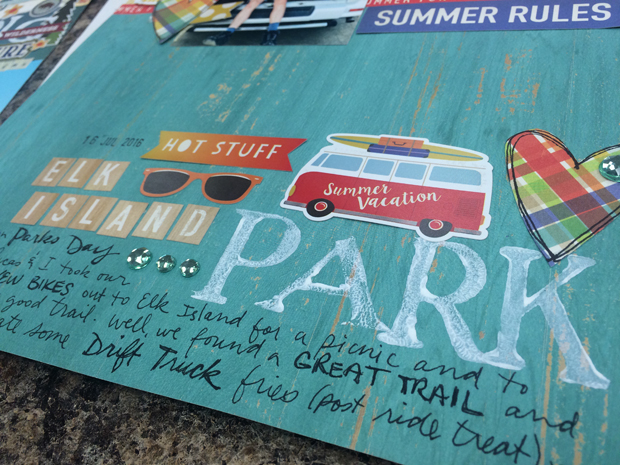 SUMMER RULES
16 JUL 2016
HOT STUFF
Summer
Vacation
ELK
ISLAND
PARK
Parks Day
& I took our
BIKES out to Elk Island for a picnic and to
good trail. well we found a GREAT TRAIL and
ate some Drift Truck fries (post ride treat)